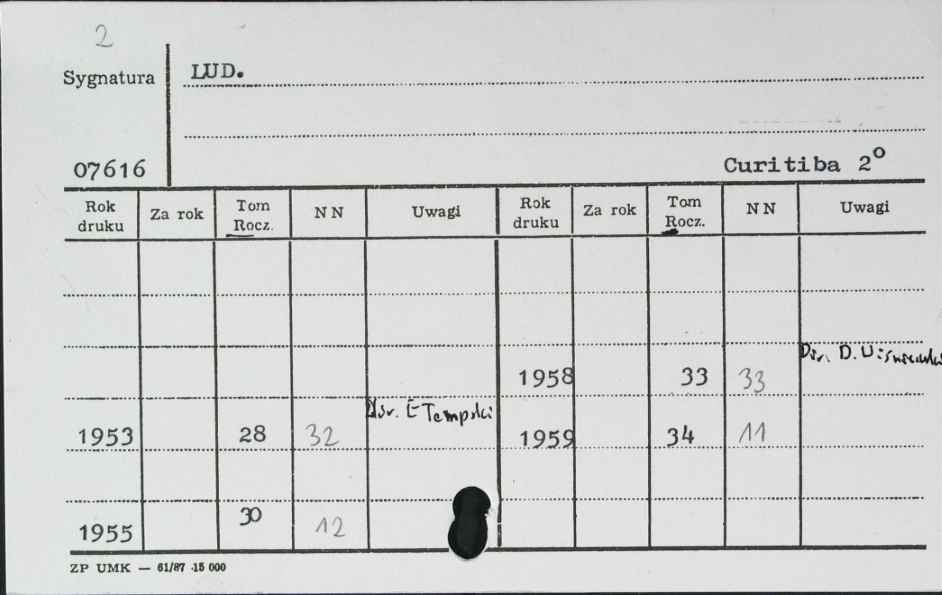 2
Sygnatura LUD.
07616 Curitiba 2°
Rok druku Za rok Tom Rocz. NN Uwagi Rok druku Za rok Tom Rocz. NN Uwagi
1958 33 33 D.
1953 28 32 E Tempski 1959 34 11
1955 30 12
ZP UMK — 61/87 15 000